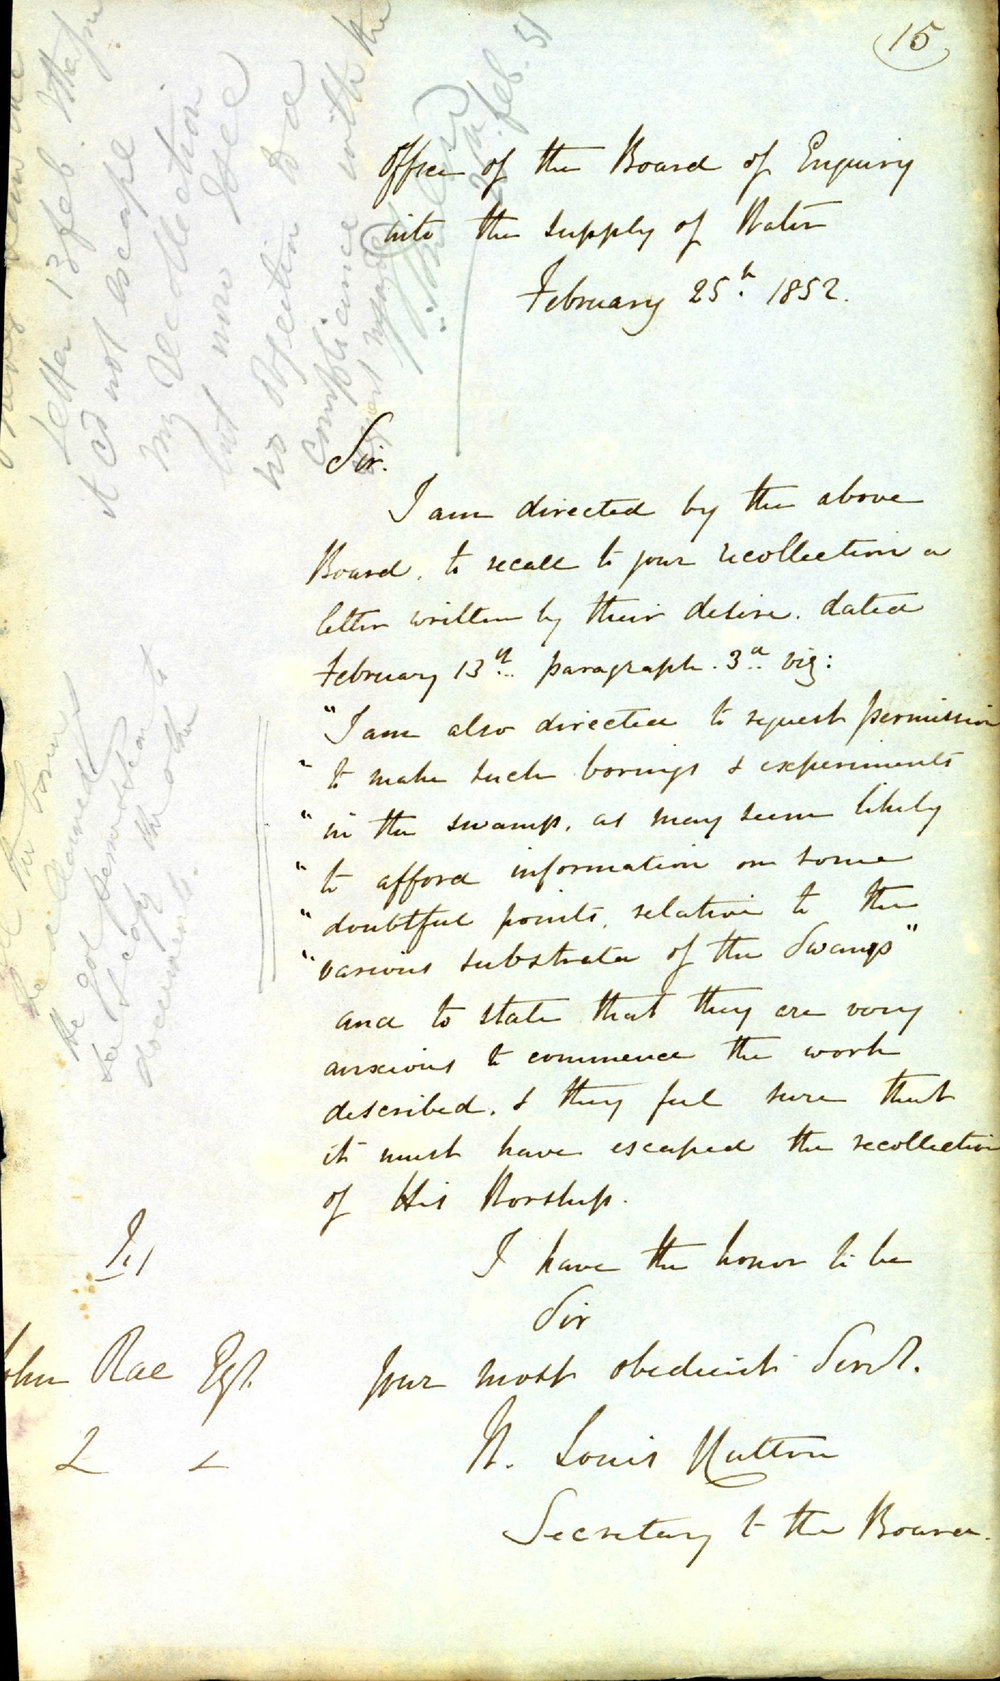 15
Office of the Board of Enquiry
into the supply of Water
February 25th. 1852.
Sir.
I am directed by the above
Board, to recall to your recollection a
letter written by their desire. dated
February 13th... paragraph. 3d.. viz:
"I am also directed to request permission
" to make such borings & experiments
" in the swamp, as may seem likely
" to afford information on some
" doubtful points, relative to the
" various substrata of the Swamps"
and to state that they are very
anxious to commence the work
described. & they feel sure that
it must have escaped the recollection
of His Worship.
I have the honor to be
Sir
Your most obedient Servt.
W. Louis Hutton
Secretary to the Board.
To/
John Rae Esqr.
letter 13 Feb. that
it did not escape
my recollection
but now see
no objection to a
compliance with the
Feb. 51
the
be cleaned
he got permission to
copy the other
documents.